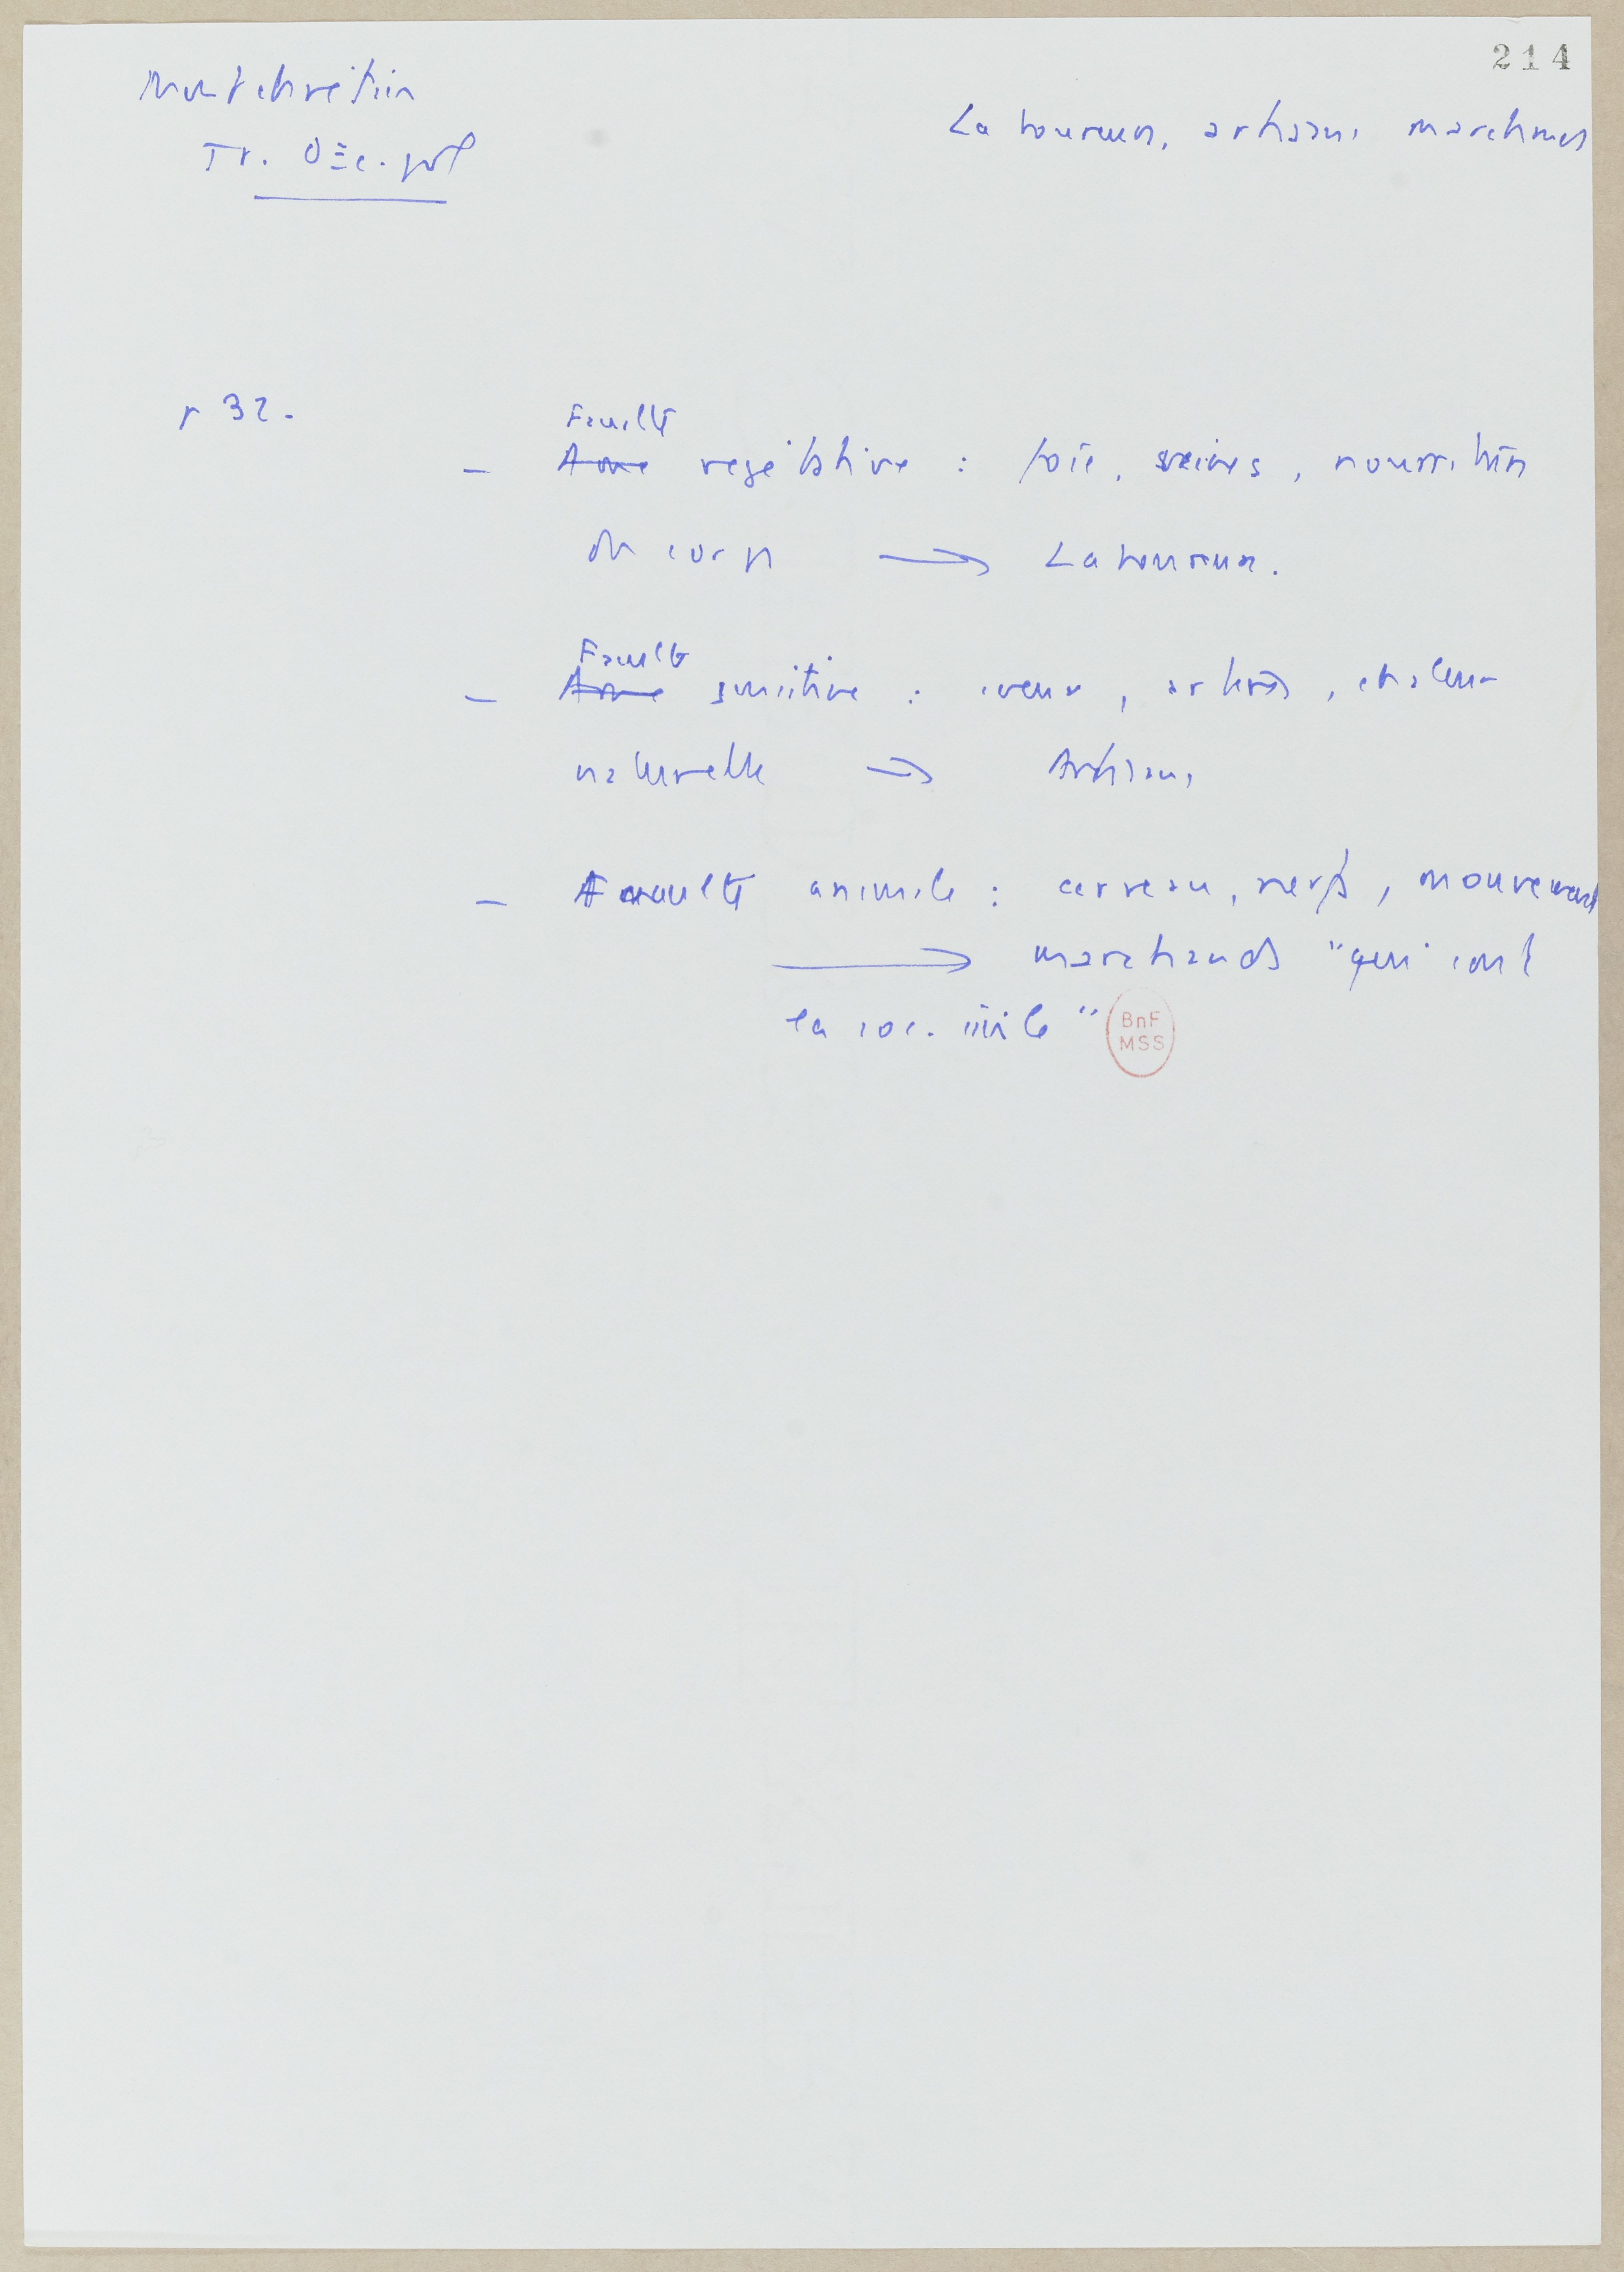 214
Montchrétien
Tr. OEc. pol
Laboureurs, artisans marchands
p 32.
Faculté
- Ame végétative : foie, veines, nourrition
du corps → Laboureurs.
Faculté
- Ame sensitive : coeur, artères, chaleur
naturelle → Artisans
- Faculté animale : cerveau, nerfs, mouvement
→ marchands "qui sont
la soc. civile"
BnF
MSS